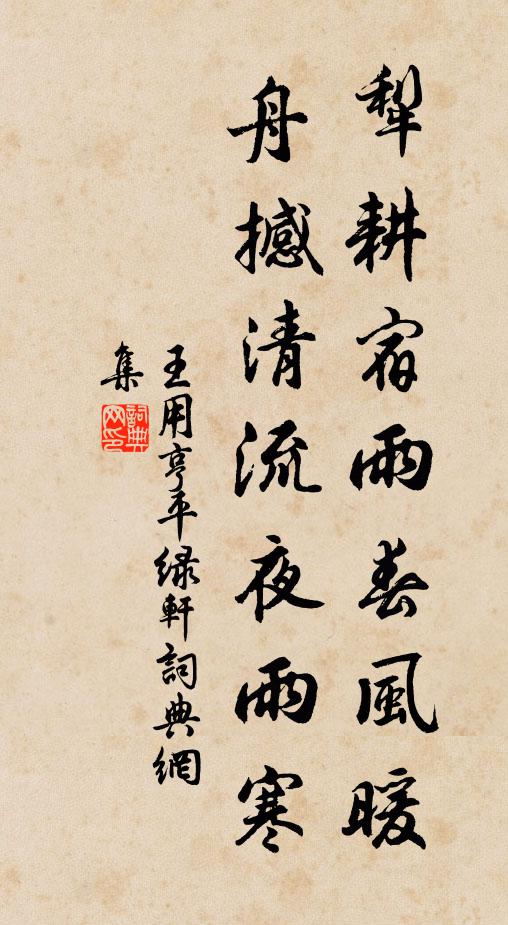 犁耕宿雨春風暖
舟撼清流夜雨寒
王用亨平緑軒詞典網
集
詞典网印